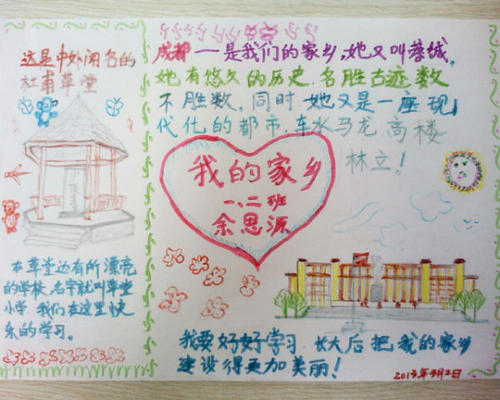 这是中外闻名的
杜甫草堂
在草堂边有所漂亮
的学校,名字叫草堂
小学,我们在这里快
乐的学习。
成都——是我们的家乡,她又叫蓉城。
她有悠久的历史,名胜古迹数
不胜数,同时,她又是一座现
代化的都市,车水马龙,高楼
林立!
我的家乡
一.二班
余思源
我要好好学习,长大后把我的家乡
建设得更加美丽!